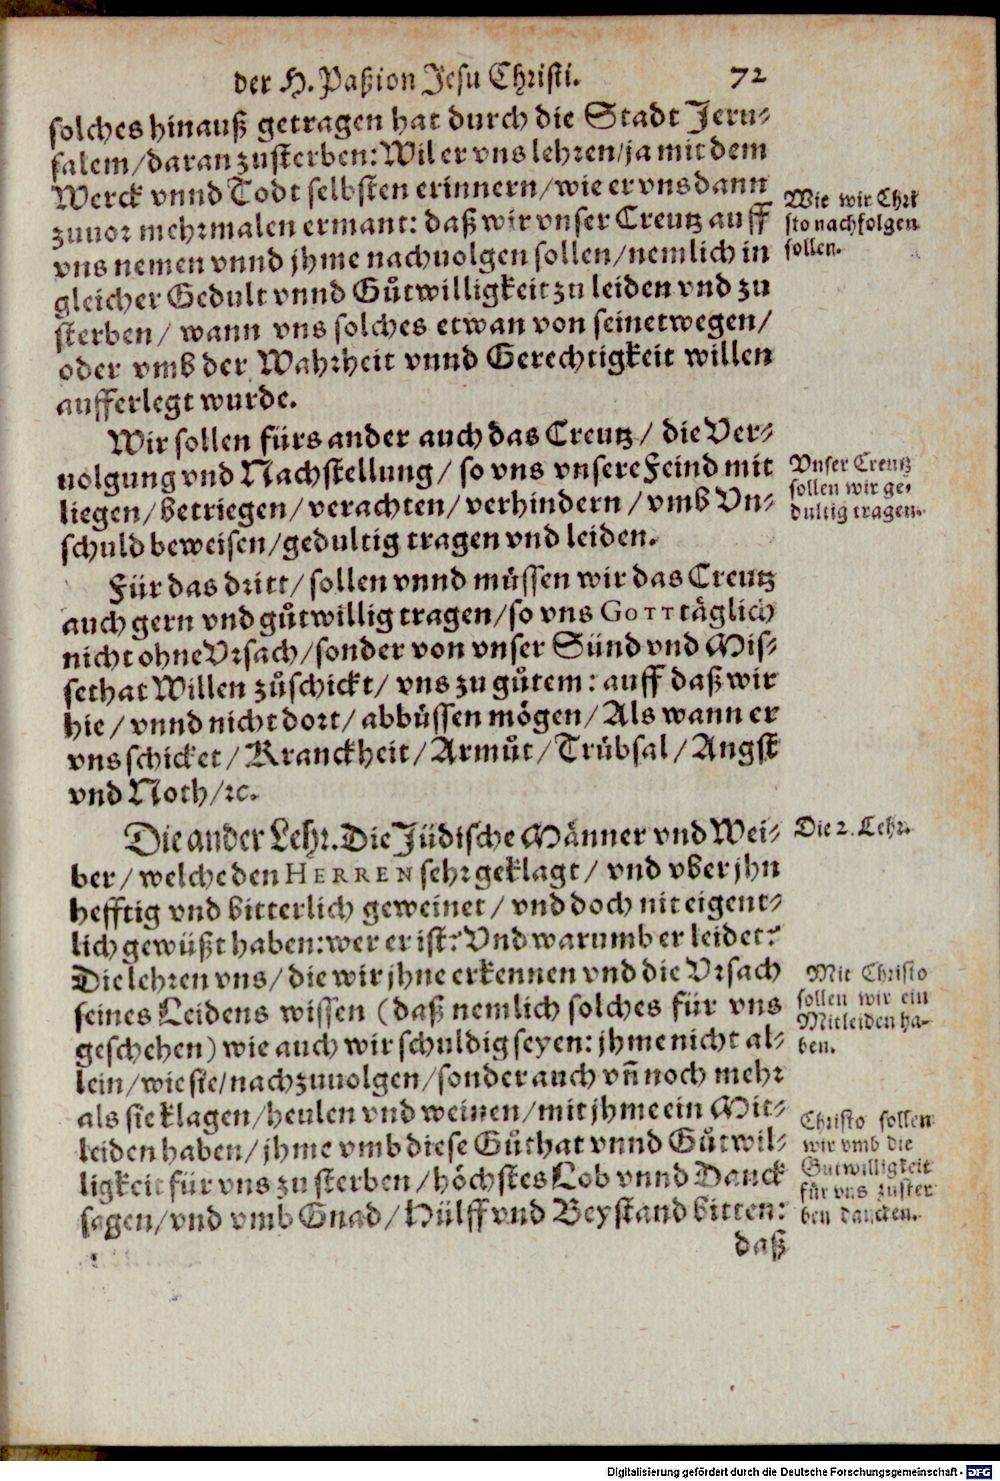 der H. Paßion Jesu Christi. 72
solches hinauß getragen hat durch die Stadt Jeru-
salem/daran zusterben: Wil er vns lehren/ja mit dem
Werck vnnd Todt selbsten erinnern/wie er vns dann
zuuor mehrmalen ermant: daß wir vnser Creutz auff
vns nemen vnnd jhme nachuolgen sollen/nemlich in
gleicher Gedult vnnd Gůtwilligkeit zu leiden vnd zu
sterben/ wann vns solches etwan von seinetwegen/
oder vmb der Wahrheit vnnd Gerechtigkeit willen
aufferlegt wurde.
Wie wir Chri
sto nachfolgen
sollen.
Wir sollen fürs ander auch das Creutz/ die Ver-
uolgung vnd Nachstellung/ so vns vnsere Feind mit
liegen/betriegen/verachten/verhindern/vmb Vn-
schuld beweisen/gedultig tragen vnd leiden.
Vnser Creutz
sollen wir ge-
dultig tragen.
Für das dritt/ sollen vnnd müssen wir das Creutz
auch gern vnd gůtwillig tragen/so vns GOTT täglich
nicht ohne Vrsach/sonder von vnser Sünd vnd Mis-
sethat Willen zůschickt/ vns zu gůtem: auff daß wir
hie/ vnnd nicht dort/ abbüssen mögen/ Als wann er
vns schicket/ Kranckheit/ Armůt/ Trübsal/ Angst
vnd Noth/ꝛc.
Die ander Lehr. Die Jüdische Männer vnd Wei-
ber/ welche den HERREN sehr geklagt/ vnd vber jhn
hefftig vnd bitterlich geweinet/ vnd doch nit eigent-
lich gewüßt haben: wer er ist? Vnd warumb er leidet?
Die lehren vns/ die wir jhne erkennen vnd die Vrsach
seines Leidens wissen (daß nemlich solches für vns
geschehen) wie auch wir schuldig seyen: jhme nicht al-
lein/wie sie/nachzuuolgen/sonder auch vñ noch mehr
als sie klagen/heulen vnd weinen/mit jhme ein Mit-
leiden haben/ jhme vmb diese Gůthat vnnd Gůtwil-
ligkeit für vns zu sterben/ höchstes Lob vnnd Danck
sagen/vnd vmb Gnad/ Hülff vnd Beystand bitten:
Die 2. Lehr.
Mit Christo
sollen wir ein
Mitleiden ha-
ben.
Christo sollen
wir vmb die
Gutwilligkeit
für vns zuster
ben dancken.
daß
Digitalisierung gefördert durch die Deutsche Forschungsgemeinschaft - DFG